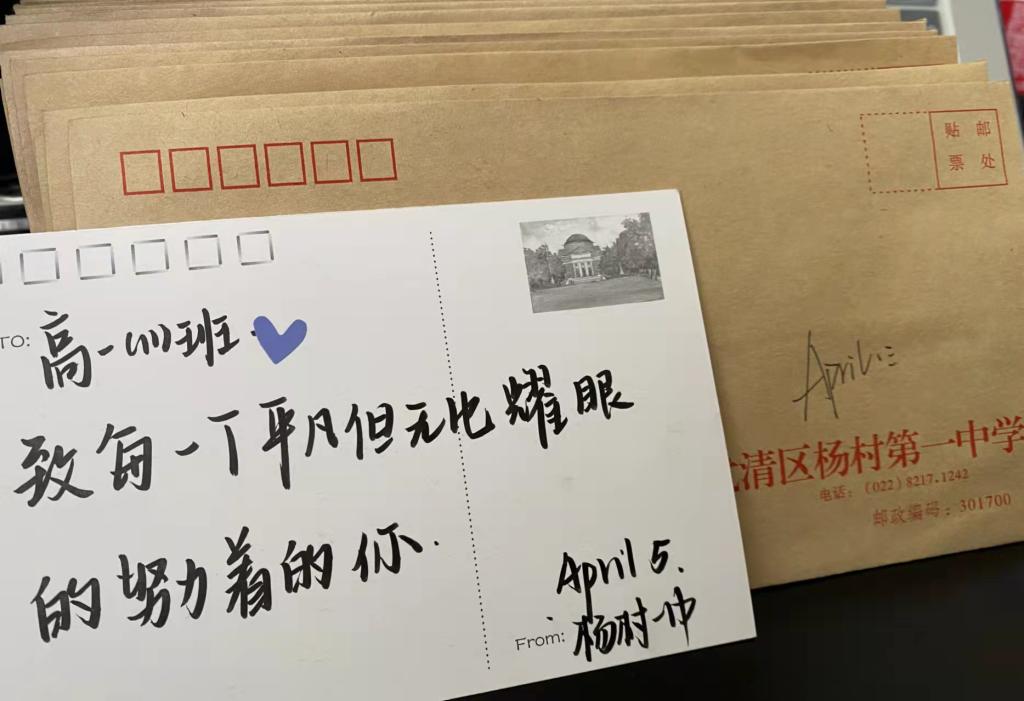 贴 邮
票 处
TO: 高一(1)班.
致每一个平凡但无比耀眼
的努力着的你.
April 5.
From: 杨村一中
April
清区杨村第一中学
电话:（022）8217.1242
邮政编码：301700